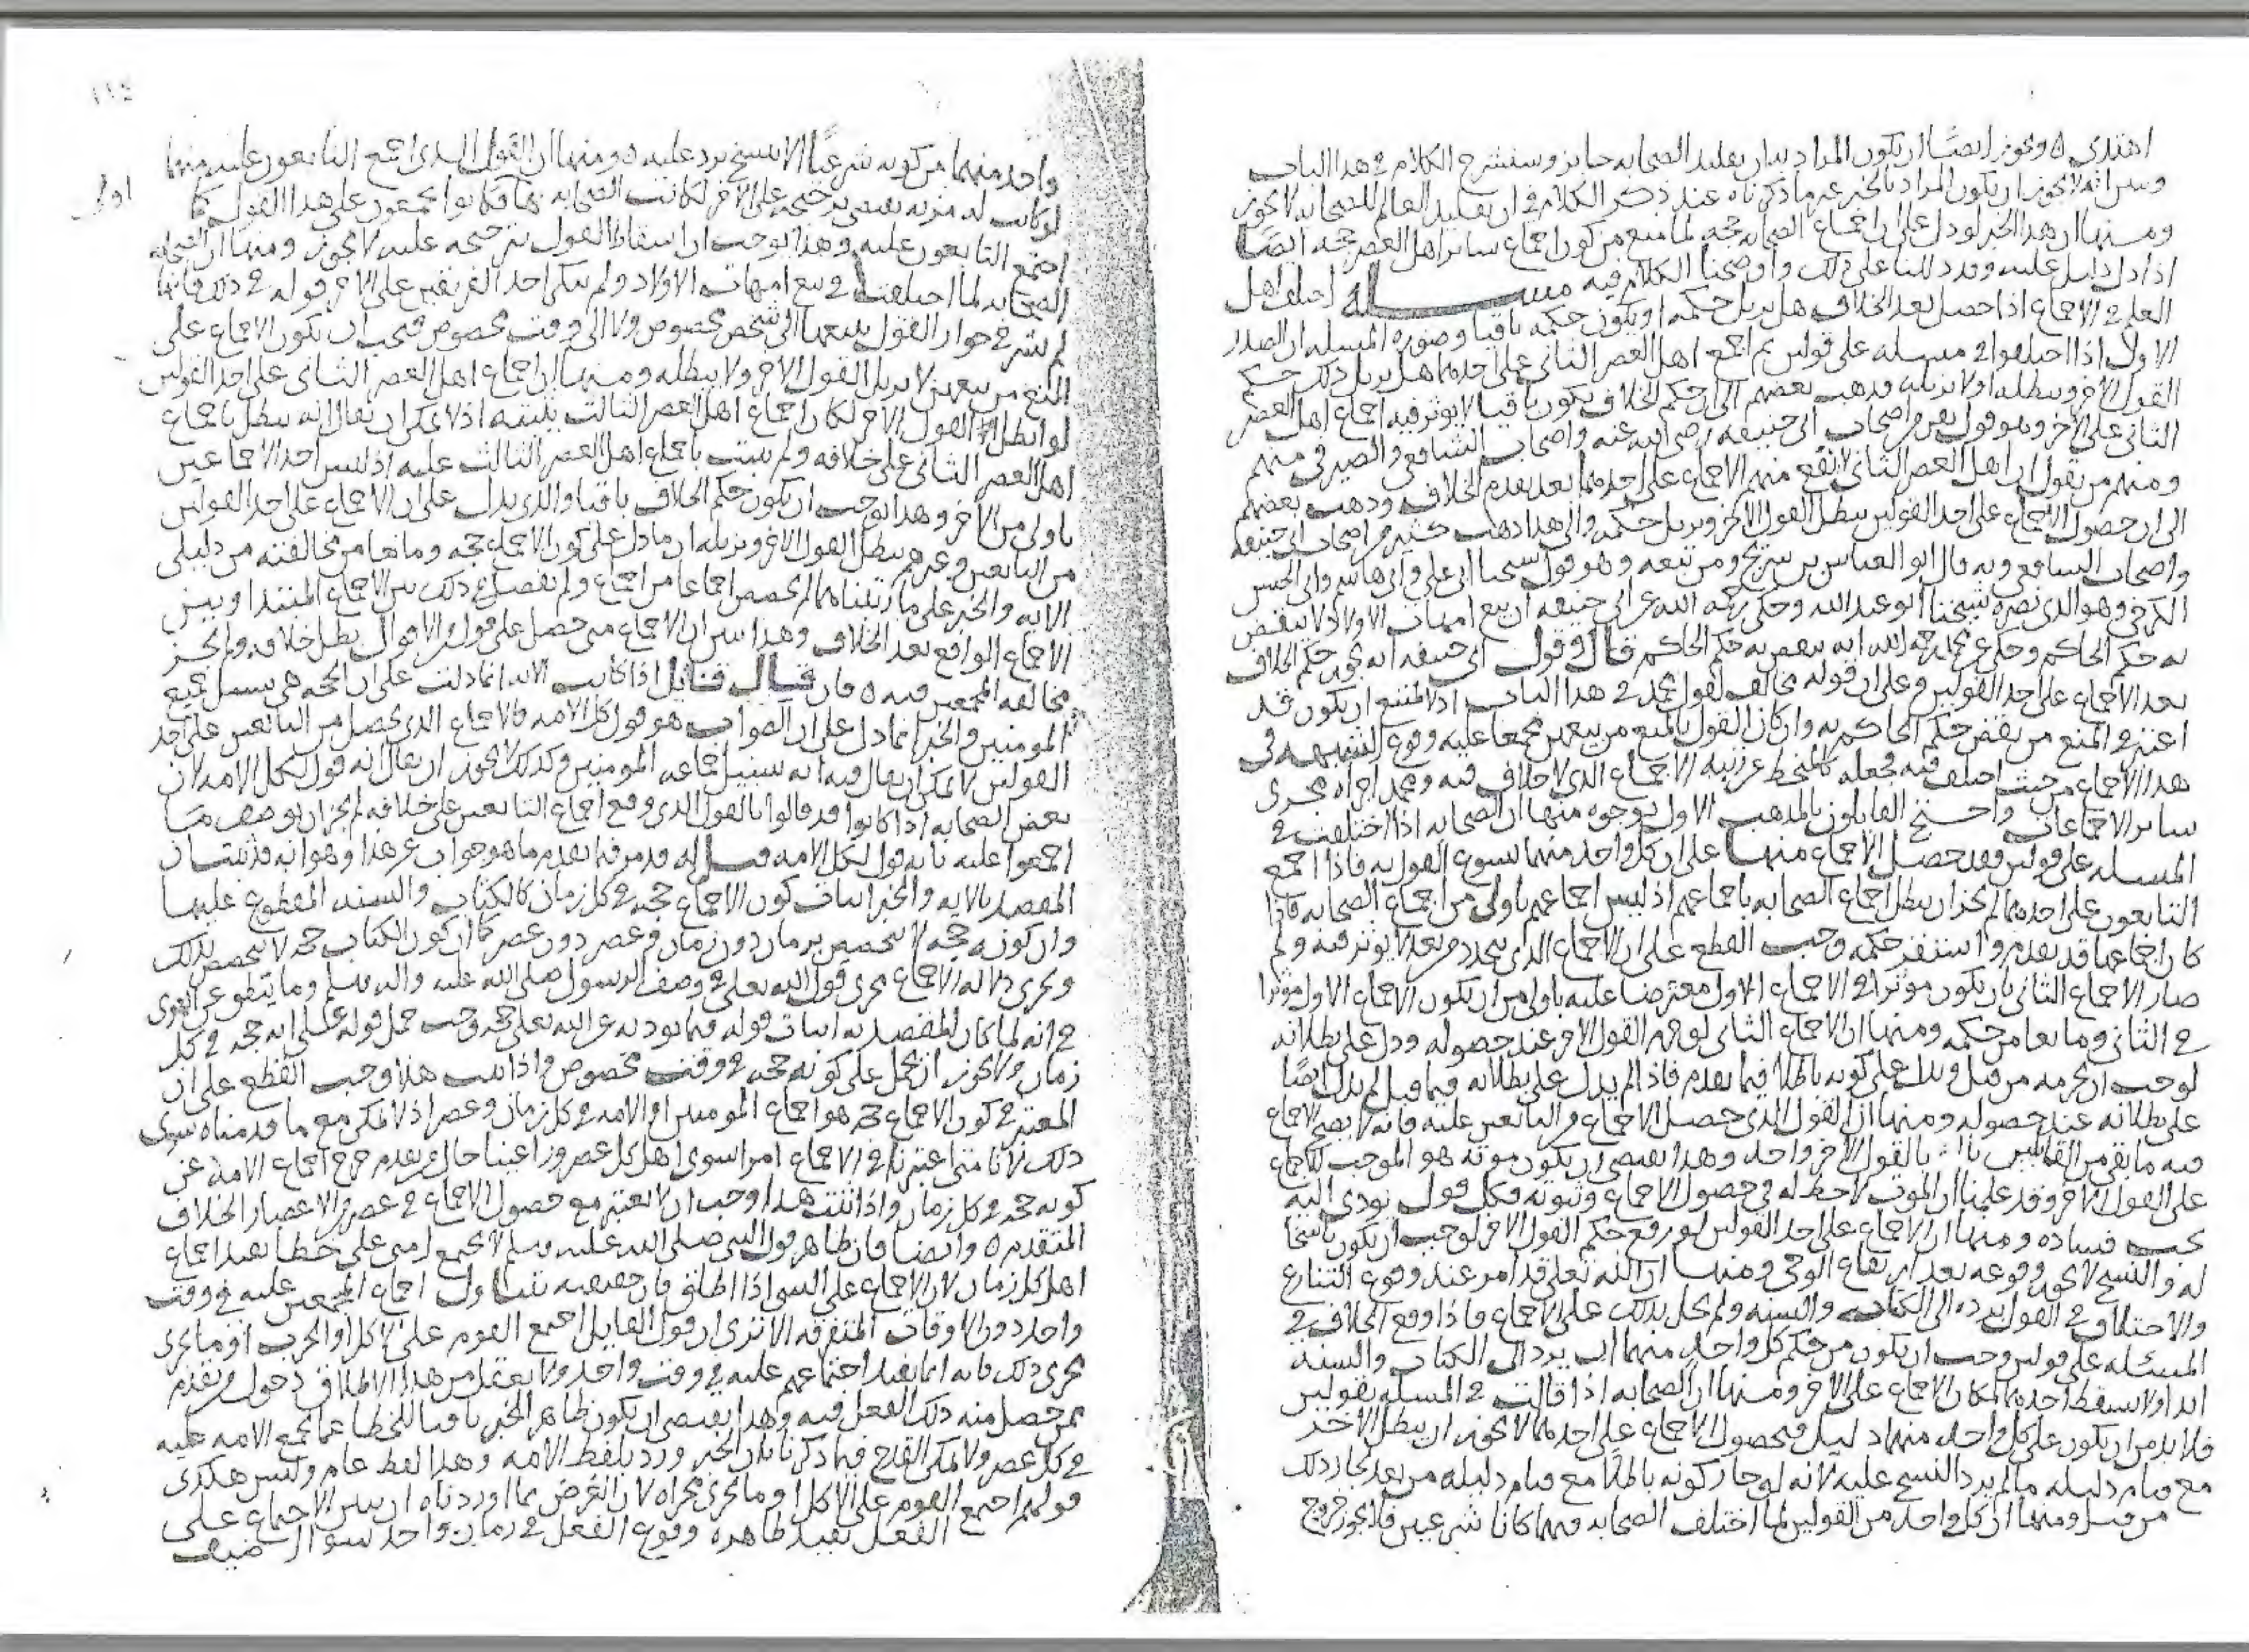 اهتدى ۵ ويجوز ايضًا ان يكون المراد بيان تقليد الصحابه جايز وسنشرح الكلام في هذا الباب
وسرانه لا يجوز ان يكون المراد بالخبر غير ما ذكرناه عند ذكر الكلام في ان تقليد العالم للصحابه لا يجوز
ومنها ان هذا الخبر لو دل على ان اجماع الصحابه حجه لما منع من كون اجماع ساير اهل العصر حجه ايضًا
اذا دل دليل عليه وقد دللنا على ذلك واوضحنا الكلام فيه مسله اختلف اهل
العلم في الاجماع اذا حصل بعد الخلاف هل يزيل حكمه او يكون حكمه باقيا وصوره المسله ان الصدر
الاول اذا اختلفوا في مسله على قولين ثم اجمع اهل العصر الثاني على احدهما هل يزيل ذلك حكم
القول الاخر ويبطله او لا يزيله فذهب بعضهم الى ان حكم الخلاف يكون باقيا لا يوثر فيه اجماع اهل العصر
الثاني على الاخر وهو قول نفر من اصحاب ابي حنيفه رضي الله عنه واصحاب الشافعي والصيرفي منهم
ومنهم من يقول ان اهل العصر الثاني لا يقع منهم الاجماع على احدهما بعد تقدم الخلاف وذهب بعضهم
الى ان حصول الاجماع على احد القولين يبطل القول الاخر ويزيل حكمه والى هذا ذهب كثير من اصحاب ابي حنيفه
واصحاب الشافعي وبه قال ابو العباس بن سريج ومن تبعه وهو قول شيخنا ابي علي وابي هاشم وابي الحسن
الكرخي وهو الذي نصره شيخنا ابو عبد الله وحكى رحمه الله عن ابي حنيفه ان بيع امهات الاولاد لا ينقض
به حكم الحاكم وحكى عن محمد رحمه الله انه ينقض به حكم الحاكم قال وقول ابي حنيفه انه يجوز حكم الخلاف
بعد الاجماع على احد القولين وعلى ان قوله مخالف لقول محمد في هذا الباب اذ لا يمتنع ان يكون قد
اعتبر في المنع من نقض حكم الحاكم به وان كان القول بالمنع من بيعهن مجمعا عليه وقوع الشبهه في
هذا الاجماع من حيث اختلف فيه فجعله كالمنحط عن رتبه الاجماع الذي لا خلاف فيه ومحمد اجراه مجرى
ساير الاجماعات واحتج القايلون بالمذهب الاول بوجوه منها ان الصحابه اذا اختلفت في
المسله على قولين فقد حصل الاجماع منها على ان كل واحد منهما يسوغ القول به فاذا اجمع
التابعون على احدهما لم يجز ان يبطل اجماع الصحابه باجماعهم اذ ليس اجماعهم باولى من اجماع الصحابه فاذا
كان اجماعها قد تقدم واستقر حكمه وجب القطع على ان الاجماع الذي يتجدد من بعد لا يوثر فيه ولم
صار الاجماع الثاني بان يكون موثرا في الاجماع الاول معترضا عليه باولى من ان يكون الاجماع الاول موثرا
في الثاني ومانعا من حكمه ومنها ان الاجماع الثاني لو حرم القول الاخر عند حصوله ودل على بطلانه
لوجب ان يحرمه من قبل ويدل على كونه باطلا فيما تقدم فاذا لم يدل على بطلانه فيما قبل لم يدل ايضًا
على بطلانه عند حصوله ومنها ان القول الذي حصل الاجماع من التابعين عليه فانه لا يصح الاجماع
فيه ما بقي من القايلين بالقول الاخر واحد وهذا يقتضي ان يكون موته هو الموجب للاجماع
على القول الاخر وقد علمنا ان الموت لا حظ له في حصول الاجماع وثبوته فكل قول يودي اليه
يجب فساده ومنها ان الاجماع على احد القولين لو رفع حكم القول الاخر لوجب ان يكون ناسخا
له والنسخ لا يجوز وقوعه بعد ارتفاع الوحي ومنها ان الله تعلى قد امر عند وقوع التنازع
والاختلاف في القول برده الى الكتاب والسنه ولم يحل بذلك على الاجماع فاذا وقع الخلاف في
المسئله على قولين وجب ان يكون من حكم كل واحد منهما ان يرد الى الكتاب والسنه
ابدا ولا يسقط احدهما لمكان الاجماع على الاخر ومنها ان الصحابه اذا قالت في المسله بقولين
فلا بد من ان يكون على كل واحد منهما دليل فحصول الاجماع على احدهما لا يجوز ان يبطل الاخر
مع قيام دليله ما لم يرد النسخ عليه لانه لو جاز كونه باطلًا مع قيام دليله من بعد لجاز ذلك
من قبل ومنها ان كل واحد من القولين لما اختلف الصحابه فيهما كانا شرعيين فلا يجوز خروج
١١٤
واحد منهما من كونه شرعيًا الا بنسخ يرد عليه ۵ ومنها ان القول الذي اجمع التابعون عليه منهما
لو كانت له مزيه يقتضي ترجيحه على الاخر لكانت الصحابه بها فكانوا يجمعون على هذا القول كما
اولى
اجتمع التابعون عليه وهذا يوجب ان اسقاط القول بترجيحه عليه لا يجوز ومنها ان الصحابه
الصحابه لما اختلفت في بيع امهات الاولاد ولم ينكر احد الفريقين على الاخر قوله في ذلك فانها
لم تشر في جواز القول ببيعها الى شخص مخصوص ولا الى وقت مخصوص فيجب ان يكون الاجماع على
المنع من بيعهن لا يزيل القول الاخر ولا يبطله ومنها ان اجماع اهل العصر الثاني على احد القولين
لو ابطل القول الاخر لكان اجماع اهل العصر الثالث يثبته اذ لا يمكن ان يقال انه يبطل باجماع
اهل العصر الثاني على خلافه ولم يثبت باجماع اهل العصر الثالث عليه اذ ليس احد الاجماعين
باولى من الاخر وهذا يوجب ان يكون حكم الخلاف باقيا والذي يدل على ان الاجماع على احد القولين
من التابعين وغيرهم يبطل القول الاخر ويزيله ان ما دل على كون الاجماع حجه ومانعا من مخالفته من دليلي
الايه والخبر على ما رتبناهما لم يخصص اجماعا من اجماع ولم يفصل في ذلك بين الاجماع المبتدا وبين
الاجماع الواقع بعد الخلاف وهذا يبين ان الاجماع متى حصل على قول من الاقوال بطل خلافه ولم يجز
مخالفه المجمعين فيه ۵ فان قال قائل اذا كانت الايه انما دلت على ان الحجه هي سبيل جميع
المومنين والخبر انما دل على ان الصواب هو قول كل الامه فالاجماع الذي يحصل من التابعين على احد
القولين لا يمكن ان يقال فيه انه سبيل جماعه المومنين وكذلك لا يجوز ان يقال انه قول لكل الامه لان
بعض الصحابه اذا كانوا قد قالوا بالقول الذي وقع اجماع التابعين على خلافه لم يجز ان يوصف ما
اجمعوا عليه بانه قول لكل الامه قيل له قد مر فيما تقدم ما هو جواب عن هذا وهو انه قد ثبت ان
المقصد بالايه والخبر اثبات كون الاجماع حجه في كل زمان كالكتاب والسنه المقطوع عليها
وان كونه حجه لا يتخصص بزمان دون زمان وعصر دون عصر كما ان كون الكتاب حجه لا يتخصص بذلك
ويجري دلاله الاجماع مجرى قول الله تعلى في وصف الرسول صلى الله عليه واله وسلم وما ينطق عن الهوى
في انه لما كان المقصد به اثبات قوله فيما يوديه عن الله تعلى حجه وجب حمل قوله على انه حجه في كل
زمان ولا يجوز ان يحمل على كونه حجه في وقت مخصوص واذا ثبت هذا وجب القطع على ان
المعتبر في كون الاجماع حجه هو اجماع المومنين او الامه في كل زمان وعصر اذ لا يمكن مع ما قدمناه سوى
ذلك لانا متى اعتبرنا في الاجماع امرا سوى اهل كل عصر وراعينا حال من تقدم خرج اجماع الامه عن
كونه حجه في كل زمان واذا ثبت هذا وجب ان لا يعتبر مع حصول الاجماع في عصر من الاعصار الخلاف
المتقدم ۵ وايضا فان ظاهر قول النبي صلى الله عليه وسلم لا تجتمع امتي على خطا يفيد اجماع
اهل كل زمان لان الاجماع على الشي اذا اطلق فان حقيقته تتناول اجماع المجمعين عليه في وقت
واحد دون الاوقات المتفرقه الا ترى ان قول القايل اجمع القوم على الاكل او الحرب او ما يجرى
مجرى ذلك فانه انما يفيد اجتماعهم عليه في وقت واحد ولا يعقل من هذا الاطلاق دخول من تقدم
ممن حصل منه ذلك الفعل فيه وهذا يقتضي ان يكون ظاهر الخبر نافيا للخطا عما تجمع الامه عليه
في كل عصر ولا يمكن القدح فيما ذكرنا بان الخبر ورد بلفظ الامه وهذا لفظ عام وليس هكذى
قولهم اجمع القوم على الاكل وما يجرى مجراه لان الغرض بما اوردناه ان يبين الاجماع على
الفعل يفيد ظاهره وقوع الفعل في زمان واحد سوا اضيف